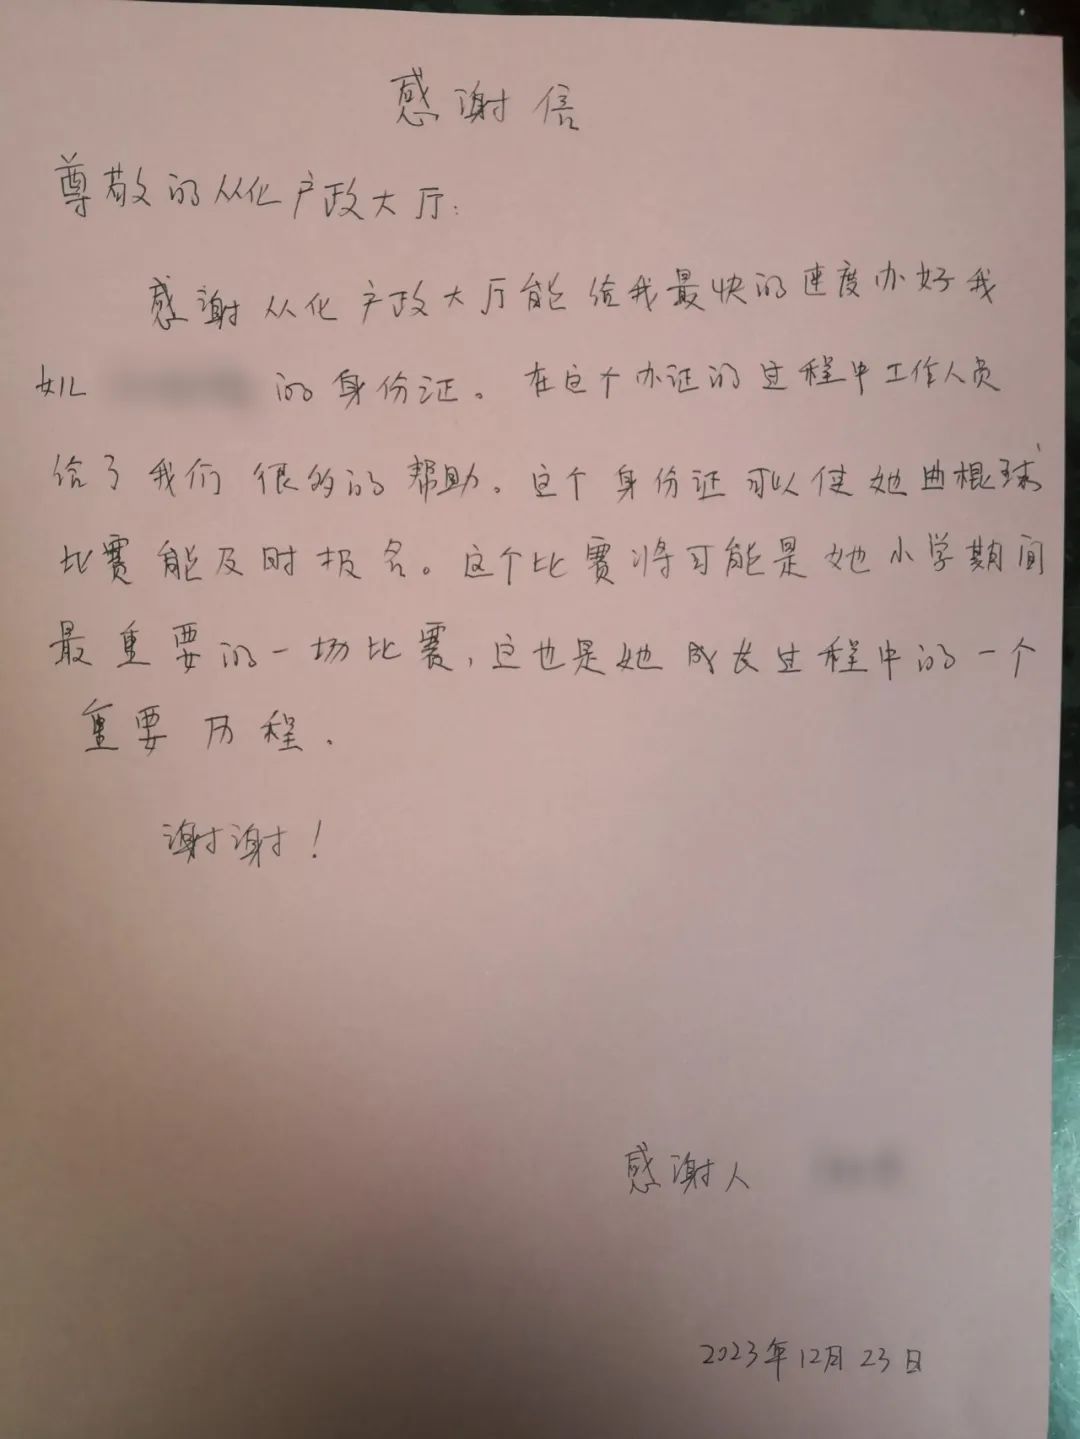 感谢信
尊敬的从化户政大厅:
感谢从化户政大厅能给我最快的速度办好我
女儿 的身份证。在这个办证的过程中工作人员
给了我们很多的帮助。这个身份证可以使她曲棍球
比赛能及时报名。这个比赛将可能是她小学期间
最重要的一场比赛,这也是她成长过程中的一个
重要历程.
谢谢!
感谢人
2023年12月23日